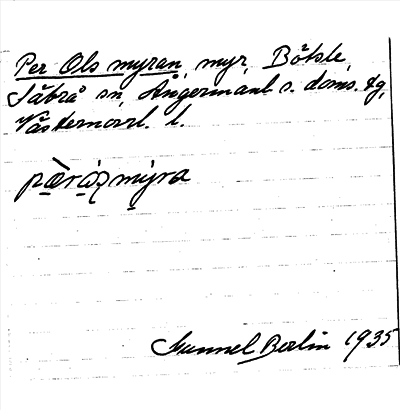 Per Ols myran, myr, Bölsle,
Säbrå sn, Ångermanl. s. doms. tg,
Västernorrl. l.
pæ̀rɷ̀ʂmýra
Gunnel Berlin 1935